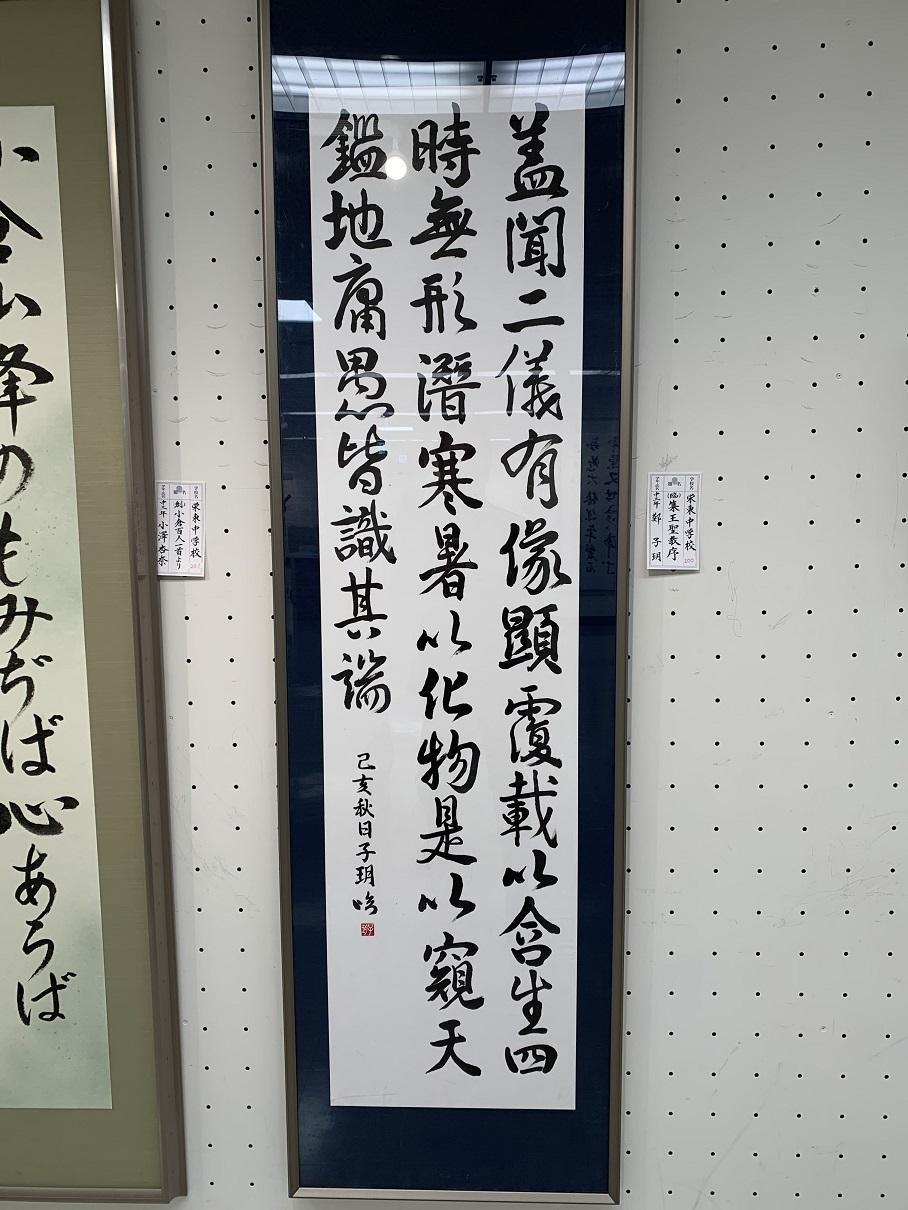 盖聞二儀有像顯覆載以含生四
時無形潛寒暑以化物是以窺天
鑑地庸愚皆識其端
己亥秋日子玥臨
学校名 栄東中学校 200
(臨)集王聖教序
鄭子玥
小倉山峰のもみぢば心あらば
学校名 栄東中学校
小倉百人一首より
小澤杏奈